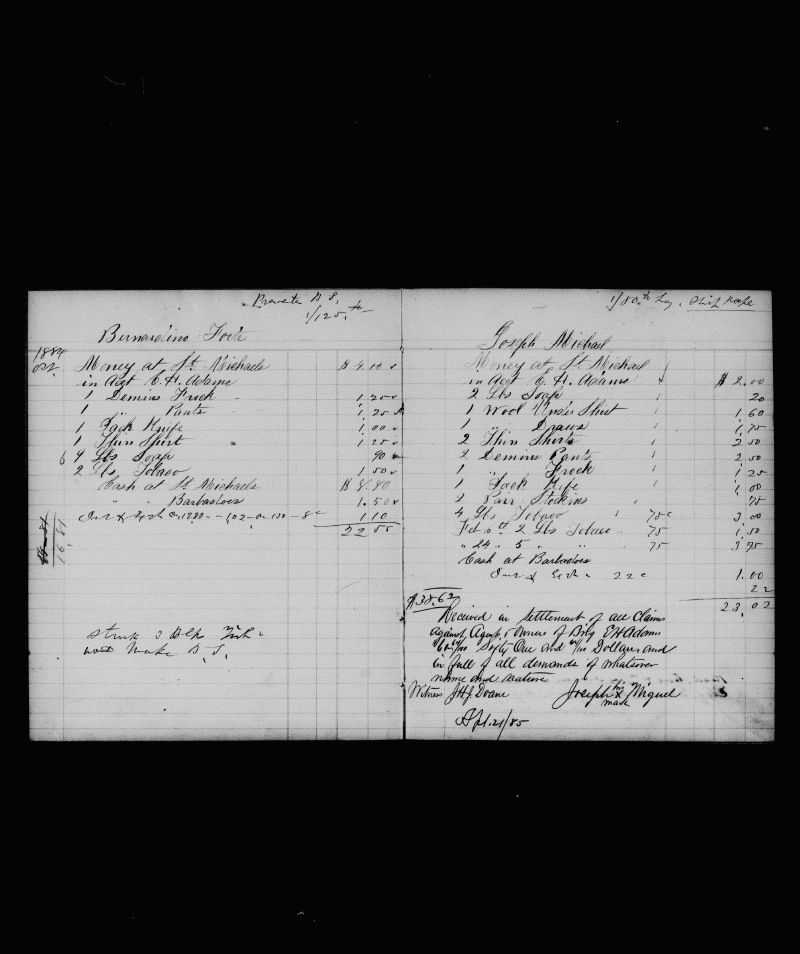 1/125th
Bernardino
1884
Oct. Money at St. Michaels $ 4.00
in Acgt E. H. Adams
1 Demins Frock " 1.25
1 " Pants " 1.25
1 Jack Knife 1.00
1 Thin Shirt 1.25
4 Lbs Soap 90
2 Lbs Tobaco 1.50
Cash at St Michaels $ 8.80
" " Barbadoes 1.50
1.10
22 55
16.81
Struck 2 Blk Fish
1/80th Lay.
Joseph Michael
Money at St. Michael
in Acgt E. H. Adams $ 2.00
2 Lbs Soap 20
1 Wool Under Shirt 1.60
1 " Draws 1.75
2 Thin Shirts 2.50
2 Demins Pants 2.50
1 " Frock 1.25
1 Jack Knife 1.00
2 Parr Stockins 75
4 Lbs Tobaco 75c 3.00
Feb 2 Lbs Tobaco 75 1.50
" 24 " 5 " " 75 3.75
Cash at Barbadoes
22c 1.00
22
23.02
$38.62
Received in settlement of all Claims
against Agent & Owners of Brig E H Adams
Sixty One and Dollars, and
in full of all demands of whatever
name and nature
Witness J. H. J. Doane Joseph his x mark Miguel
Apl. 21/85